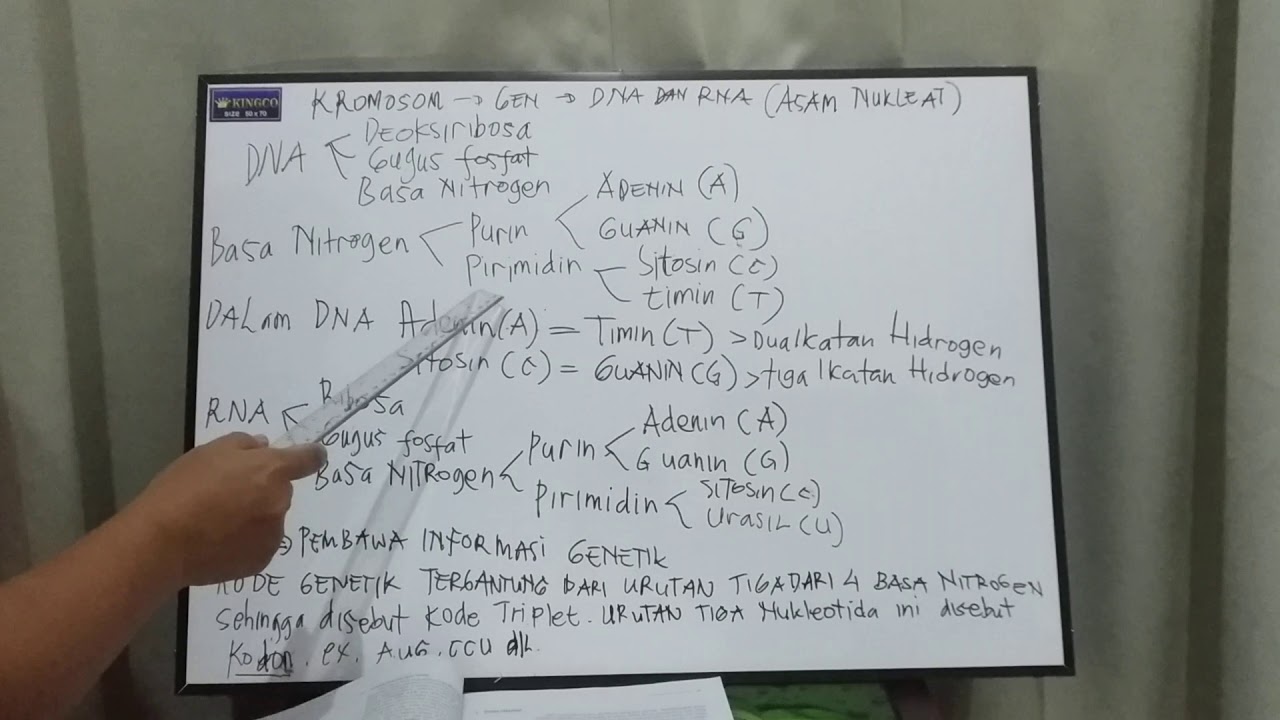 KINGCO
SIZE 50 x 70
KROMOSOM → GEN → DNA DAN RNA (ASAM NUKLEAT)
DNA
Deoksiribosa
Gugus fosfat
Basa Nitrogen
Basa Nitrogen
Purin
ADENIN (A)
GUANIN (G)
Pirimidin
Sitosin (C)
timin (T)
DALam DNA Adenin (A) = Timin (T) > Dua Ikatan Hidrogen
Sitosin (C) = GUANIN (G) > tiga Ikatan Hidrogen
RNA
Ribosa
Gugus fosfat
Basa NITRogen
Purin
Adenin (A)
Guanin (G)
Pirimidin
SITOSin (C)
UrasiL (U)
⇒ PEMBAWA INFORMASi GENETIK
KODE GENETIK TERGANTUNG DARI URUTAN TIGA DARI 4 BASA NITROGEN
Sehingga disebut Kode Triplet. URUTAN TIGA Nukleotida ini disebut
Kodon. ex. AUG. CCU dll.